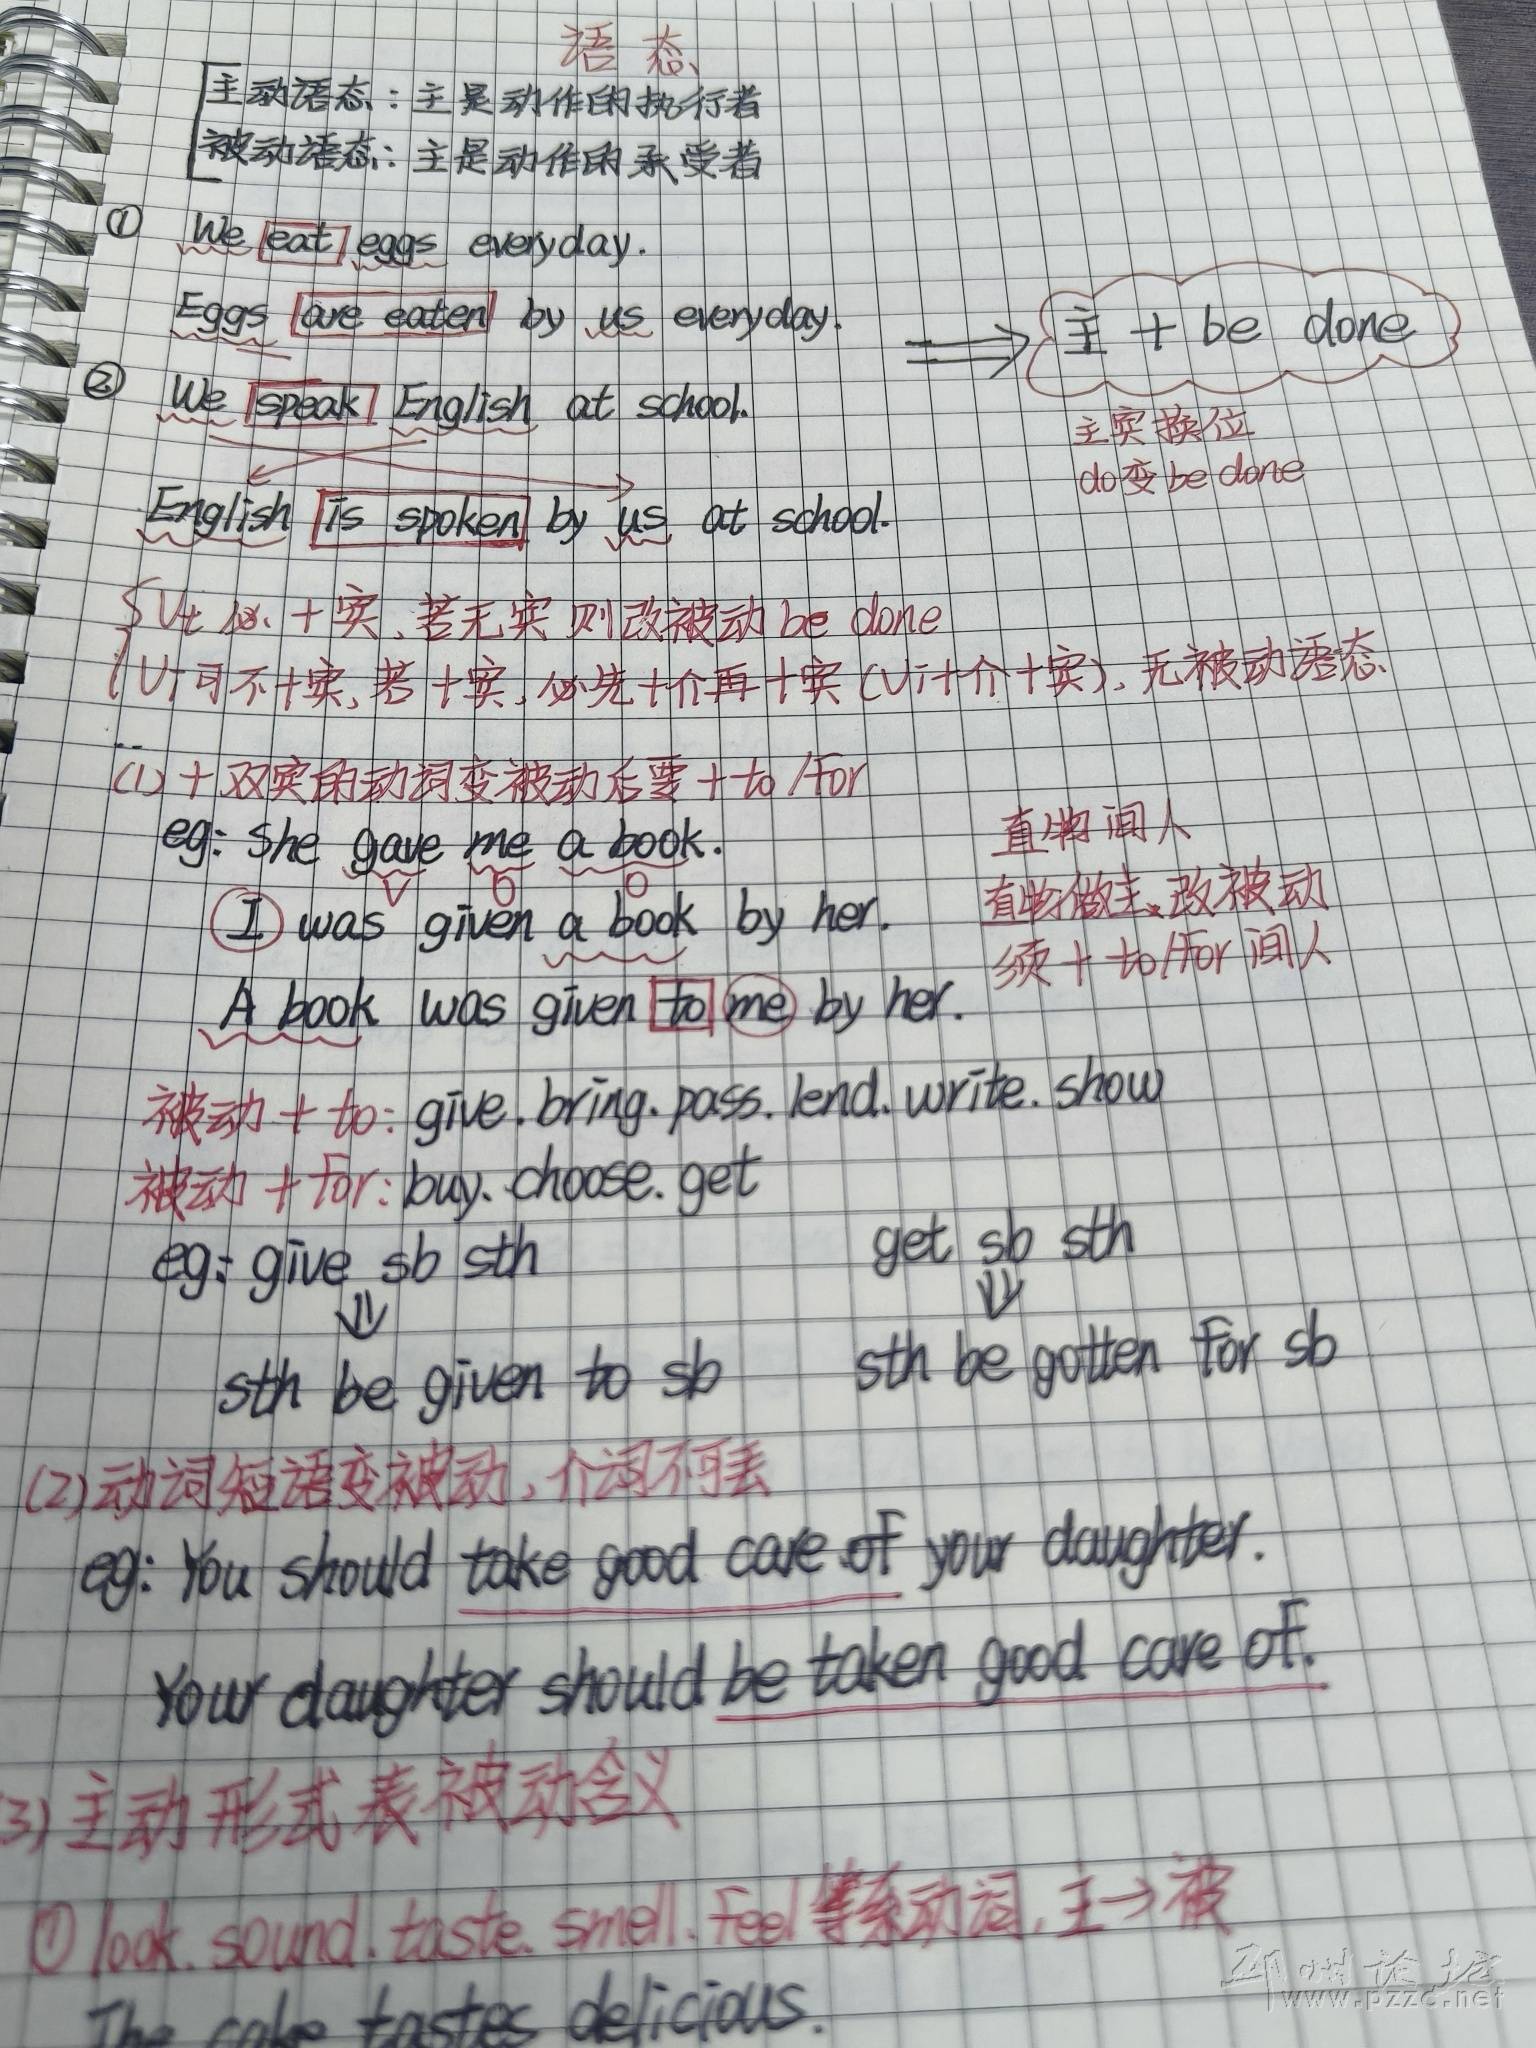 语态
主动语态：主是动作的执行者
被动语态：主是动作的承受者
① We eat eggs everyday.
Eggs are eaten by us everyday.
主 + be done
② We speak English at school.
主宾换位
do变be done
English is spoken by us at school.
Vt 必 + 宾、若无宾则改被动 be done
Vi可不+宾, 若+宾, 必先+介再+宾(Vi+介+宾), 无被动语态
(1) + 双宾的动词变被动后要 + to/for
eg: She gave me a book.
V O O
直物间人
I was given a book by her.
直物做主, 改被动
须 + to/for 间人
A book was given to me by her.
被动 + to: give. bring. pass. lend. write. show
被动 + for: buy. choose. get
eg: give sb sth
get sb sth
sth be given to sb
sth be gotten for sb
(2) 动词短语变被动, 介词不可丢
eg: You should take good care of your daughter.
Your daughter should be taken good care of.
3) 主动形式表被动含义
① look. sound. taste. smell. feel 等系动词, 主→被
The cake tastes delicious.
邳州论坛
www.pzzc.net